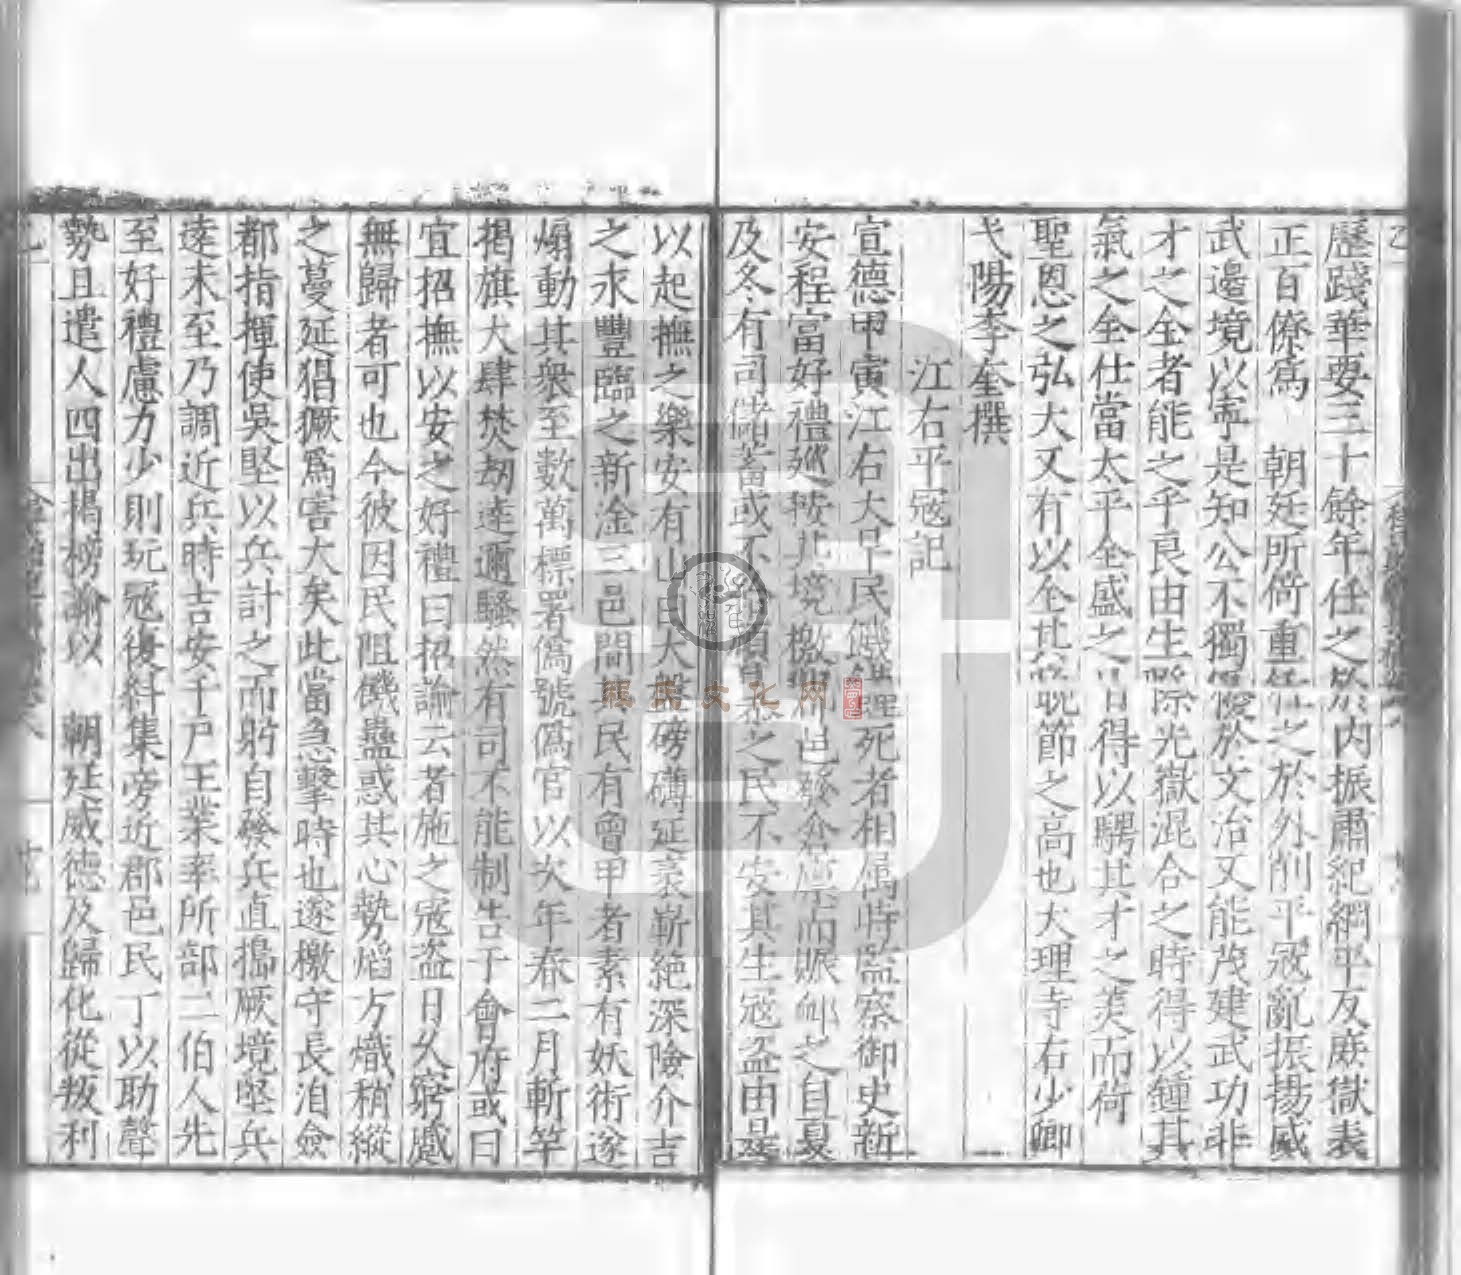 歷踐華要三十餘年任之於內振肅紀綱平反庭獄表
正百僚爲 朝廷所倚重任之於外削平寇亂振揚威
武邊境以寧是知公不獨優於文治又能茂建武功非
才之全者能之乎良由生際光嶽混合之時得以鍾其
氣之全仕當太平全盛之 得以騁其才之美而荷
聖恩之弘大又有以全其 節之高也大理寺右少卿
弋陽李奎撰
江右平寇記
宣德甲寅江右大旱民饑 死者相屬時監察御史新
安程富好禮廵按其境檄 郡邑發倉廪而賑䘏之自夏
及冬有司儲蓄或不 之民不安其生寇盗由是
以起撫之樂安有山曰大盤磅礴延袤嶄絶深險介吉
之永豐臨之新淦三邑間其民有曾甲者素有妖術遂
煽動其衆至數萬標署僞號僞官以次年春二月斬竿
揭旗大肆焚劫遠邇騷然有司不能制告于會府或曰
宜招撫以安之好禮曰招諭云者施之寇盗日久窮蹙
無歸者可也今彼因民阻饑蠱惑其心勢焰方熾稍縱
之蔓延猖獗爲害大矣此當急擊時也遂檄守長洎僉
都指揮使吳堅以兵計之而躬自發兵直搗厥境堅兵
逺未至乃調近兵時吉安千戸王業率所部二伯人先
至好禮慮力少則玩寇復糾集旁近郡邑民丁以助聲
勢且遣人四出揭榜諭以 朝廷威德及歸化從叛利
程氏文化网